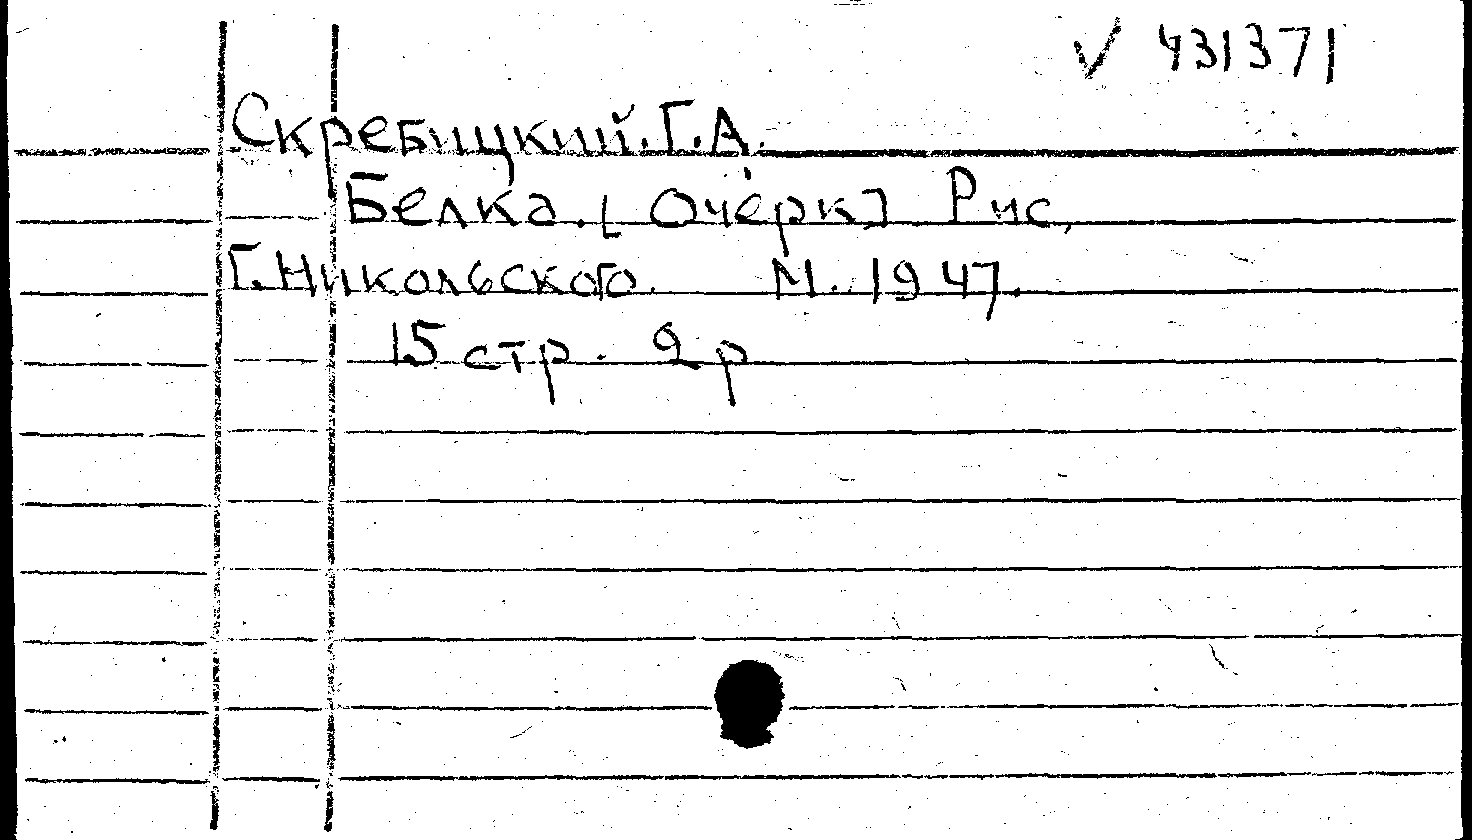 √ 431371
Скребицкий.Г.А.
Белка. [Очерк] Рис.
Г.Никольского. М. 1947.
15 стр. 2 р